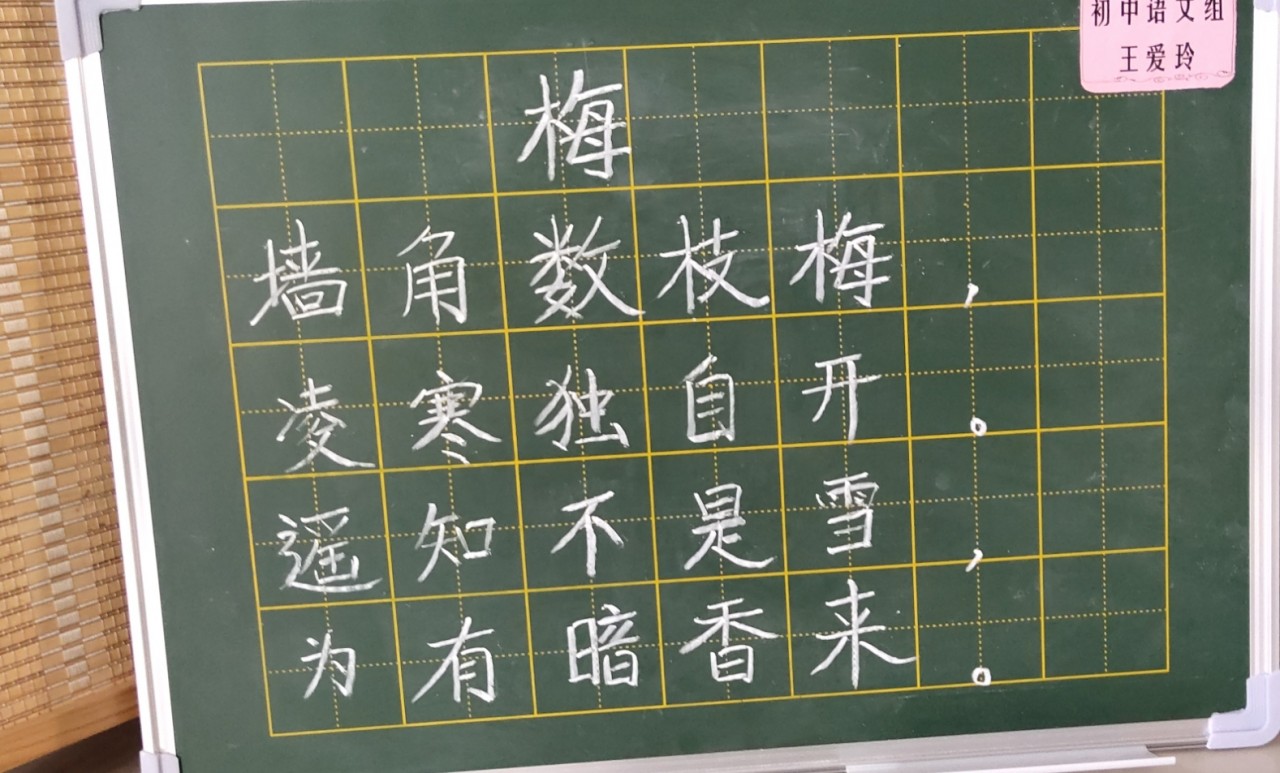 初中语文组
王爱玲
梅
墙角数枝梅，
凌寒独自开。
遥知不是雪，
为有暗香来。